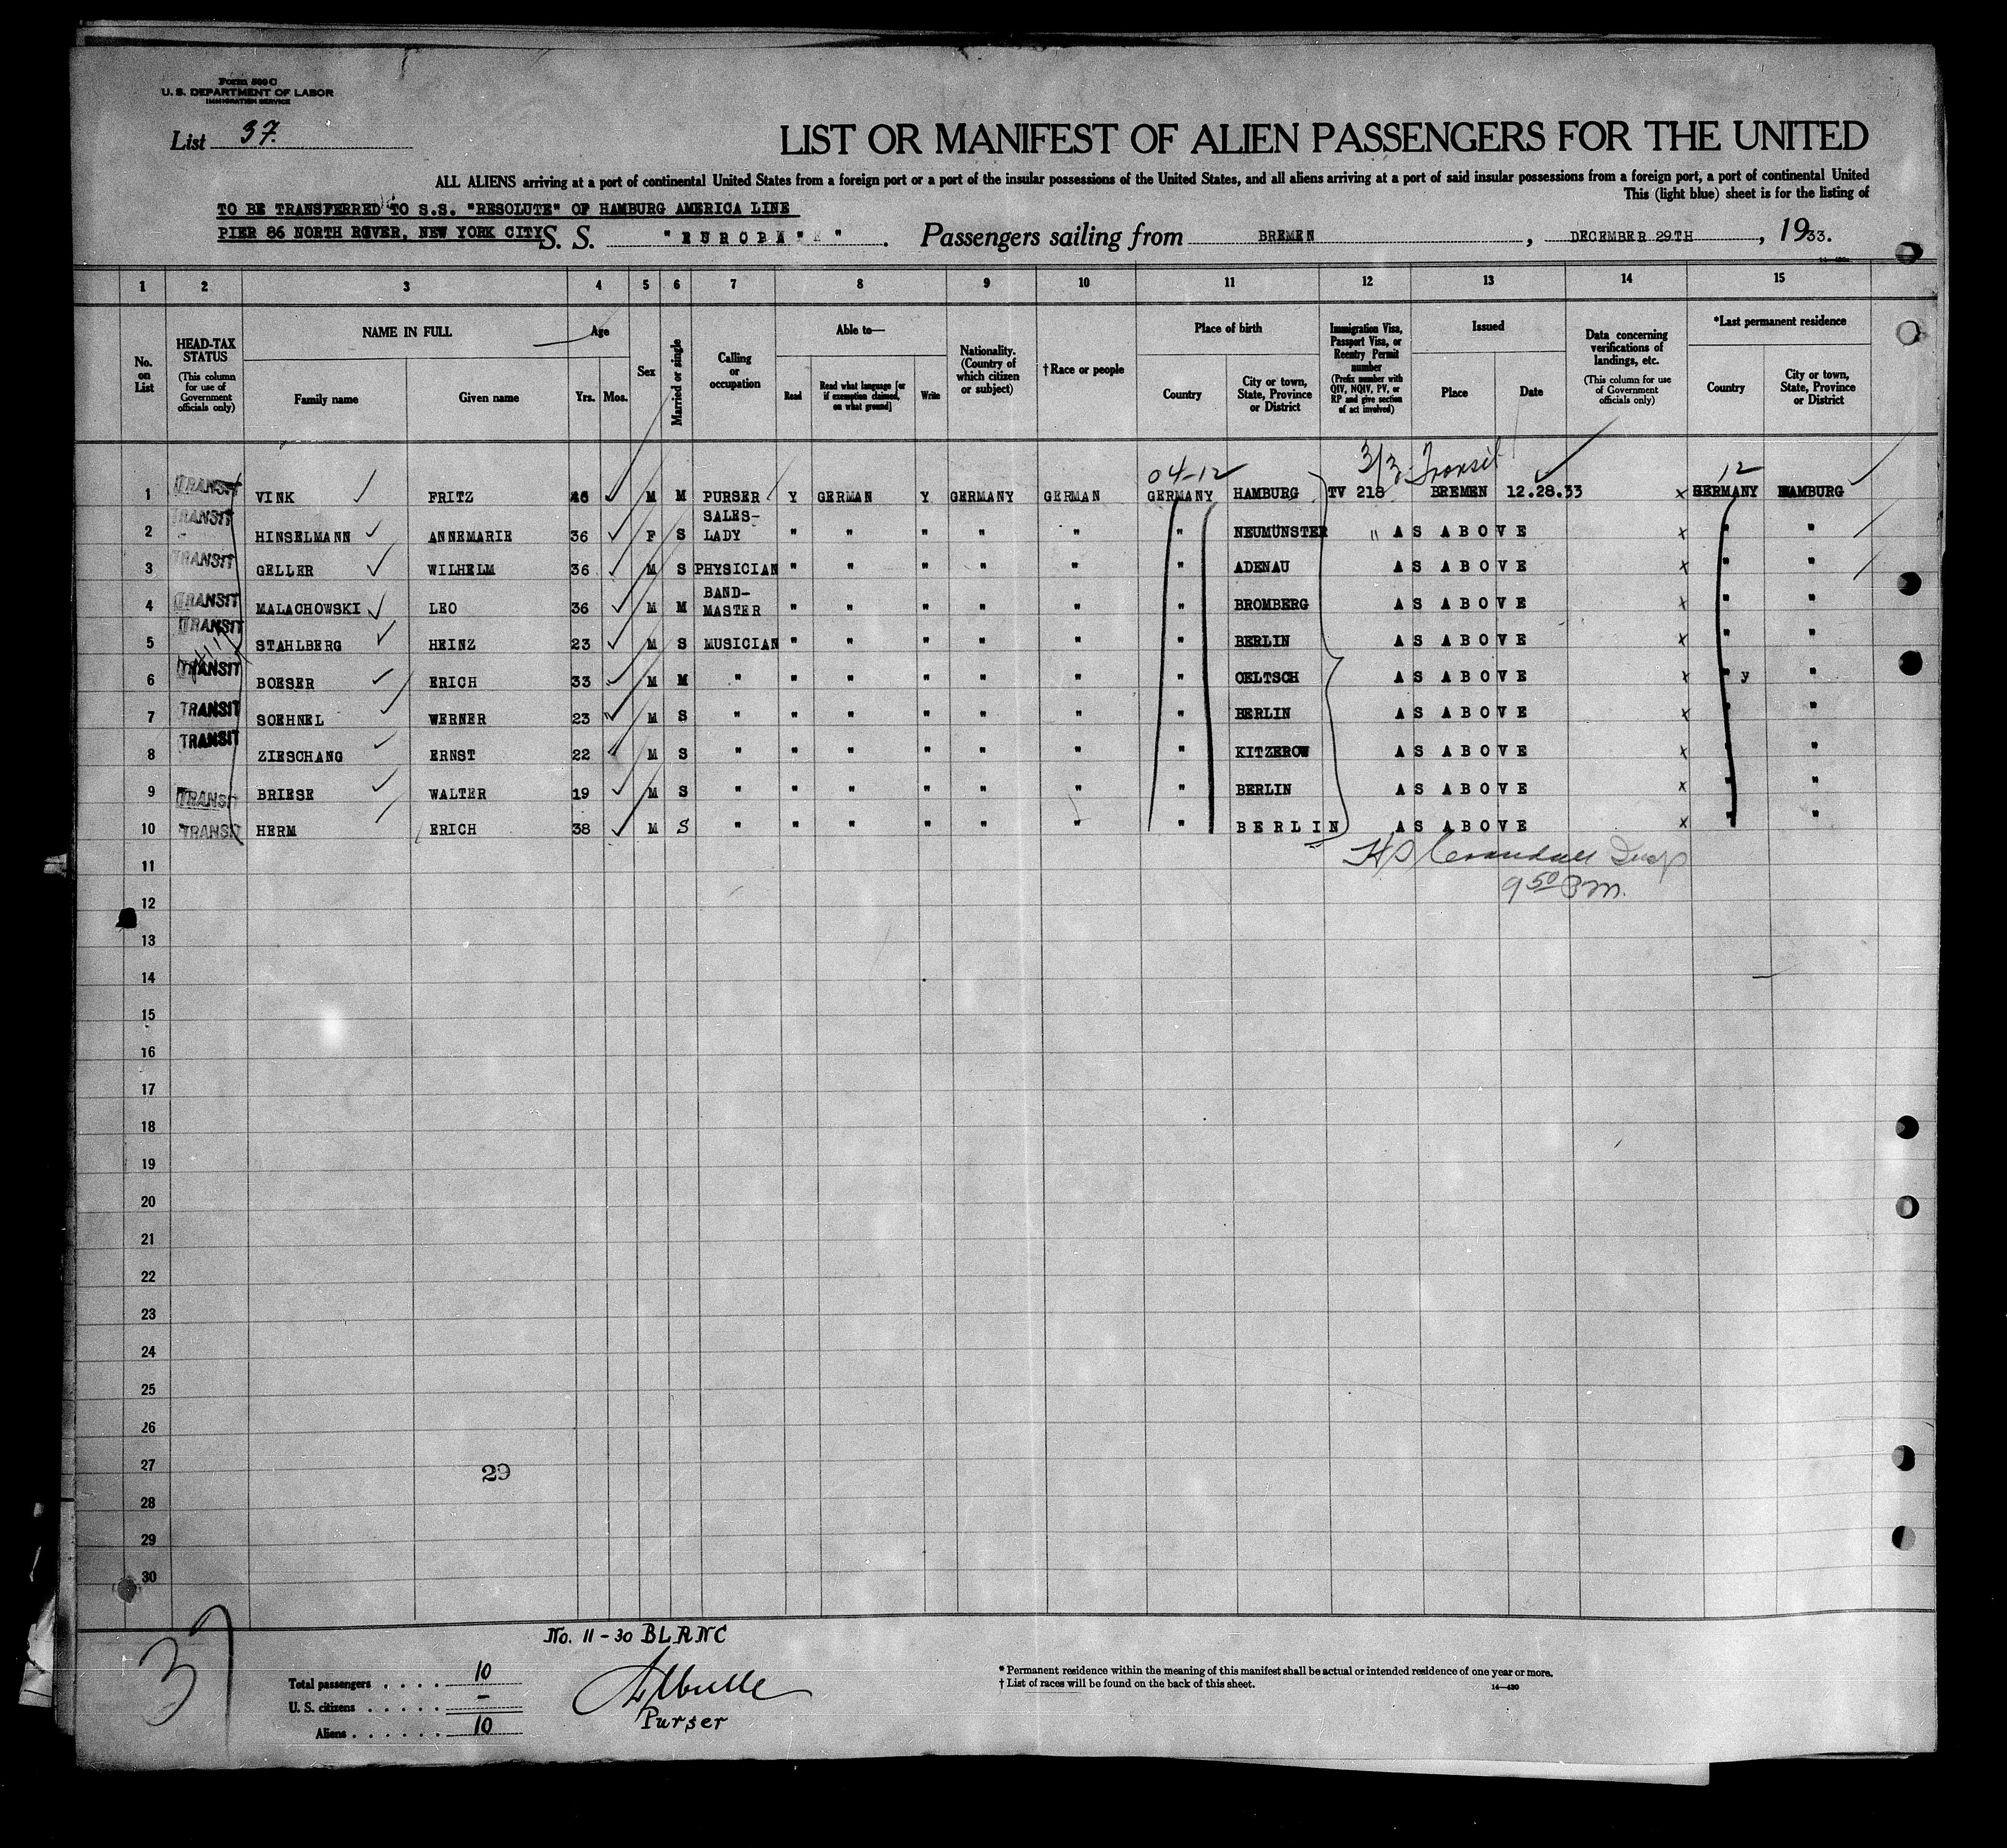 Form 500 C
U. S. DEPARTMENT OF LABOR
IMMIGRATION SERVICE
List 37.
LIST OR MANIFEST OF ALIEN PASSENGERS FOR THE UNITED
ALL ALIENS arriving at a port of continental United States from a foreign port or a port of the insular possessions of the United States, and all aliens arriving at a port of said insular possessions from a foreign port, a port of continental United
This (light blue) sheet is for the listing of
TO BE TRANSFERRED TO S.S. "RESOLUTE" OF HAMBURG AMERICA LINE
PIER 86 NORTH RIVER, NEW YORK CITY S. S. "EUROPA" . Passengers sailing from BREMEN , DECEMBER 29TH , 1933.
1 2 3 4 5 6 7 8 9 10 11 12 13 14 15
No. on List
HEAD-TAX STATUS (This column for use of Government officials only)
NAME IN FULL
Family name Given name
Age
Yrs. Mos.
Sex
Married or single
Calling or occupation
Able to—
Read
Read what language [or if exemption claimed, on what ground]
Write
Nationality. (Country of which citizen or subject)
† Race or people
Place of birth
Country
City or town, State, Province or District
Immigration Visa, Passport Visa, or Reentry Permit number (Prefix number with QIV, NQIV, PV, or RP and give section of act involved)
Issued
Place Date
Data concerning verifications of landings, etc. (This column for use of Government officials only)
*Last permanent residence
Country
City or town, State, Province or District
04-12 3/3 Transit 12
1 TRANSIT VINK FRITZ M M PURSER Y GERMAN Y GERMANY GERMAN GERMANY HAMBURG TV 218 BREMEN 12.28.33 x GERMANY HAMBURG
2 TRANSIT HINSELMANN ANNEMARIE 36 F S SALES-LADY " " " " " " NEUMÜNSTER " AS ABOVE x " "
3 TRANSIT GELLER WILHELM 36 M S PHYSICIAN " " " " " " ADENAU AS ABOVE x " "
4 TRANSIT MALACHOWSKI LEO 36 M M BAND-MASTER " " " " " " BROMBERG AS ABOVE x " "
5 TRANSIT STAHLBERG HEINZ 23 M S MUSICIAN " " " " " " BERLIN AS ABOVE x " "
6 TRANSIT BOESER ERICH 33 M M " " " " " " " OELTSCH AS ABOVE x " y "
7 TRANSIT SOEHNEL WERNER 23 M S " " " " " " " BERLIN AS ABOVE x " "
8 TRANSIT ZIESCHANG ERNST 22 M S " " " " " " " KITZEROW AS ABOVE x " "
9 TRANSIT BRIESE WALTER 19 M S " " " " " " " BERLIN AS ABOVE x " "
10 TRANSIT HERM ERICH 38 M S " " " " " " " BERLIN AS ABOVE x " "
11
9 50 P.M.
12
13
14
15
16
17
18
19
20
21
22
23
24
25
26
27 29
28
29
30
37
No. 11-30 BLANC
Total passengers . . . . 10
U. S. citizens . . . . . –
Aliens . . . . . . 10
Purser
* Permanent residence within the meaning of this manifest shall be actual or intended residence of one year or more.
† List of races will be found on the back of this sheet.
14—430